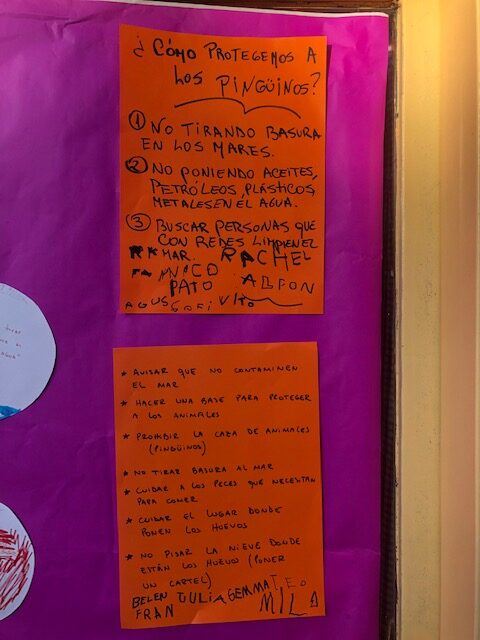 ¿CÓMO PROTEGEMOS A
LOS PINGÜINOS?
① NO TIRANDO BASURA
EN LOS MARES.
② NO PONIENDO ACEITES,
PETRÓLEOS, PLÁSTICOS,
METALES EN EL AGUA.
③ BUSCAR PERSONAS QUE
CON REDES LIMPIEN EL
MAR. RACHEL
PATO ALFON
AGUS SOFI VITO
★ AVISAR QUE NO CONTAMINEN
EL MAR
★ HACER UNA BASE PARA PROTEGER
A LOS ANIMALES
★ PROHIBIR LA CAZA DE ANIMALES
(PINGÜINOS)
★ NO TIRAR BASURA AL MAR
★ CUIDAR A LOS PECES QUE NECESITAN
PARA COMER
★ CUIDAR EL LUGAR DONDE
PONEN LOS HUEVOS
★ NO PISAR LA NIEVE DONDE
ESTÁN LOS HUEVOS (PONER
UN CARTEL)
BELEN JULIA GEMMA TEO
FRAN MILA